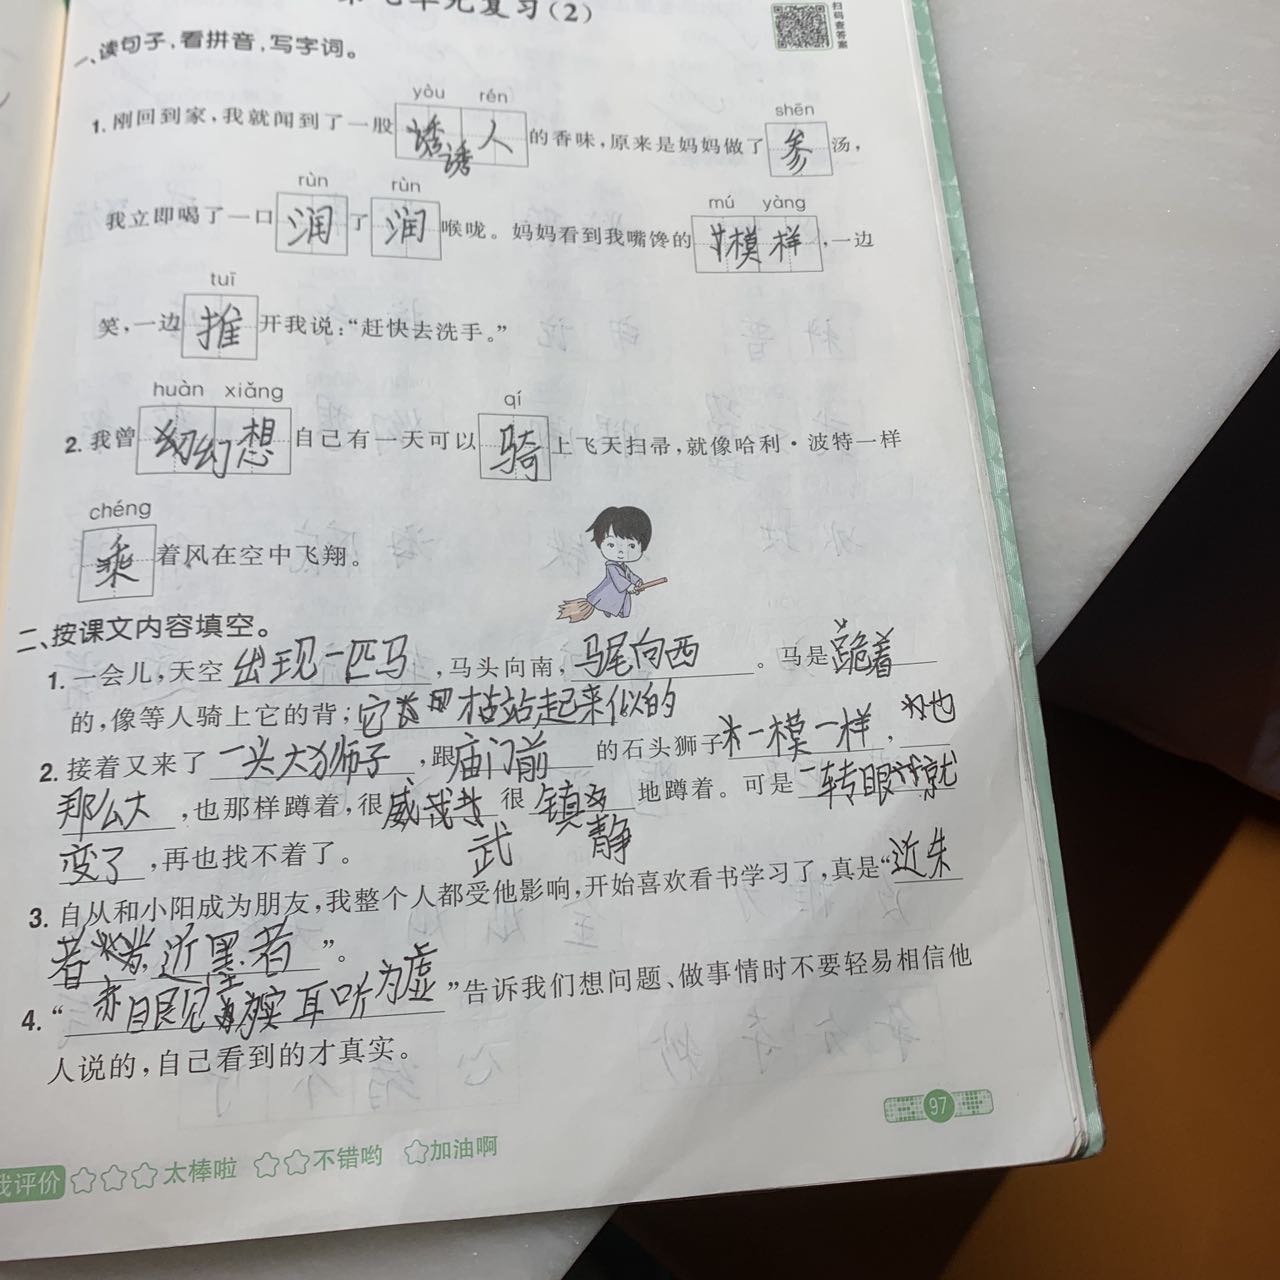 第七单元复习(2)
扫码查答案
一、读句子,看拼音,写字词。
yòu rén shēn
1. 刚回到家,我就闻到了一股诱人的香味,原来是妈妈做了参汤,
诱
rùn rùn mú yàng
我立即喝了一口润了润喉咙。妈妈看到我嘴馋的模样,一边
tuī
笑,一边推开我说:“赶快去洗手。”
huàn xiǎng qí
2. 我曾幻想自己有一天可以骑上飞天扫帚,就像哈利·波特一样
chéng
乘着风在空中飞翔。
二、按课文内容填空。
1. 一会儿,天空出现一匹马,马头向南,马尾向西。马是跪着
的,像等人骑上它的背;它 站起来似的
2. 接着又来了一头大狮子,跟庙门前的石头狮子一模一样,也
那么大,也那样蹲着,很威武很镇静地蹲着。可是一转眼就
变了,再也找不着了。
3. 自从和小阳成为朋友,我整个人都受他影响,开始喜欢看书学习了,真是“近朱
者 近墨者”。
4. “眼见为实 耳听为虚”告诉我们想问题、做事情时不要轻易相信他
人说的,自己看到的才真实。
97
我评价 太棒啦 不错哟 加油啊